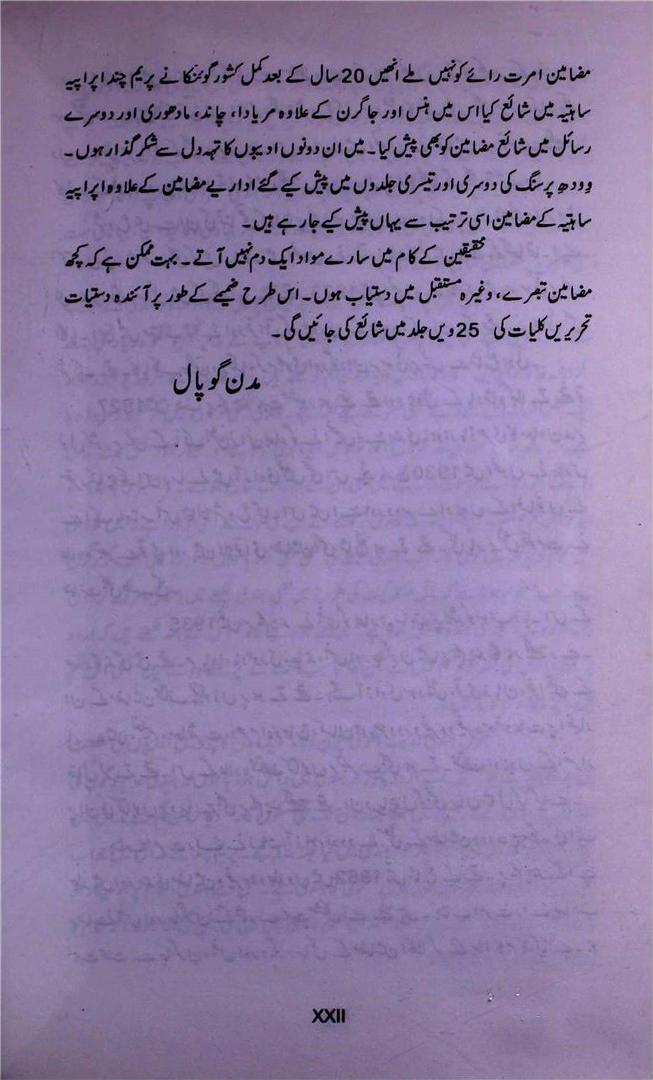 مضامین امرت رائے کو نہیں ملے انھیں 20 سال کے بعد کمل کشور گوئنکا نے پریم چند اپراپیہ
ساہتیہ میں شائع کیا اس میں ہنس اور جاگرن کے علاوہ مریادا، چاند، مادھوری اور دوسرے
رسائل میں شائع مضامین کو بھی پیش کیا۔ میں ان دونوں ادیبوں کا تہہ دل سے شکر گذار ہوں۔
وِودھ پرسنگ کی دوسری اور تیسری جلدوں میں پیش کیے گئے اداریے مضامین کے علاوہ اپراپیہ
ساہتیہ کے مضامین اسی ترتیب سے یہاں پیش کیے جارہے ہیں۔
تحقیقین کے کام میں سارے مواد ایک دم نہیں آتے۔ بہت ممکن ہے کہ کچھ
مضامین تبصرے، وغیرہ مستقبل میں دستیاب ہوں۔ اس طرح ضمیمے کے طور پر آئندہ دستیاب
تحریریں کلیات کی 25 ویں جلد میں شائع کی جائیں گی۔
مدن گوپال
XXII